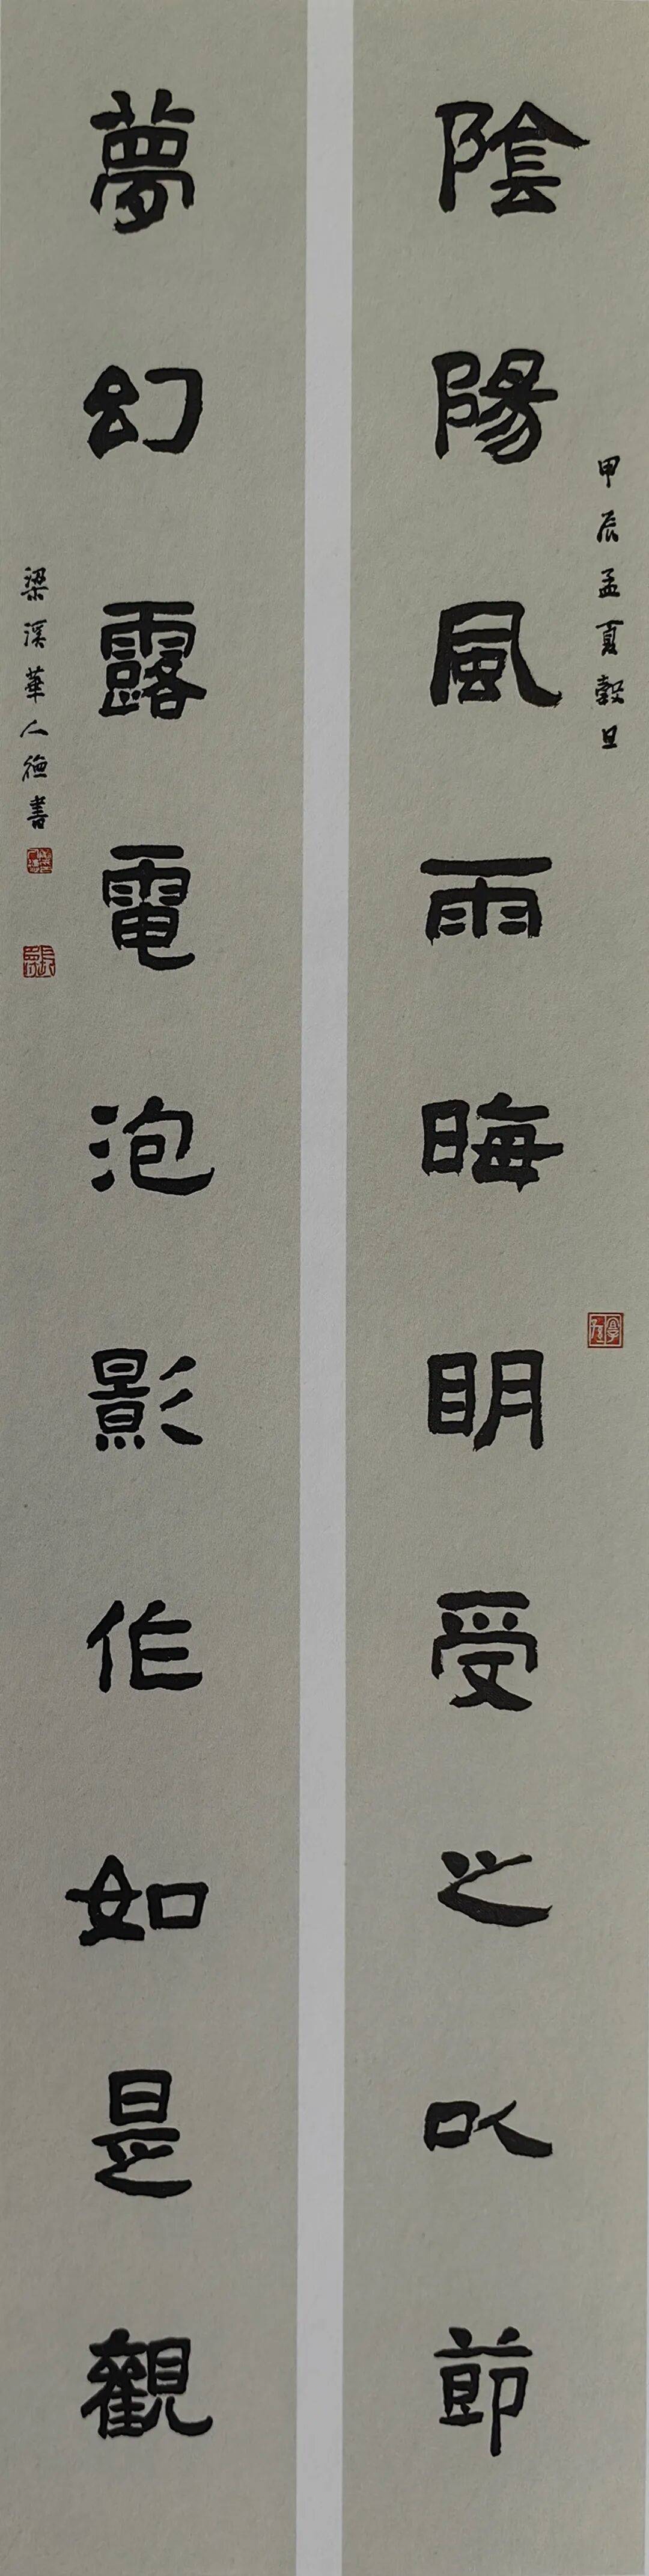 甲辰孟夏穀旦
陰陽風雨晦明受之以節
夢幻露電泡影作如是觀
梁溪華人德書